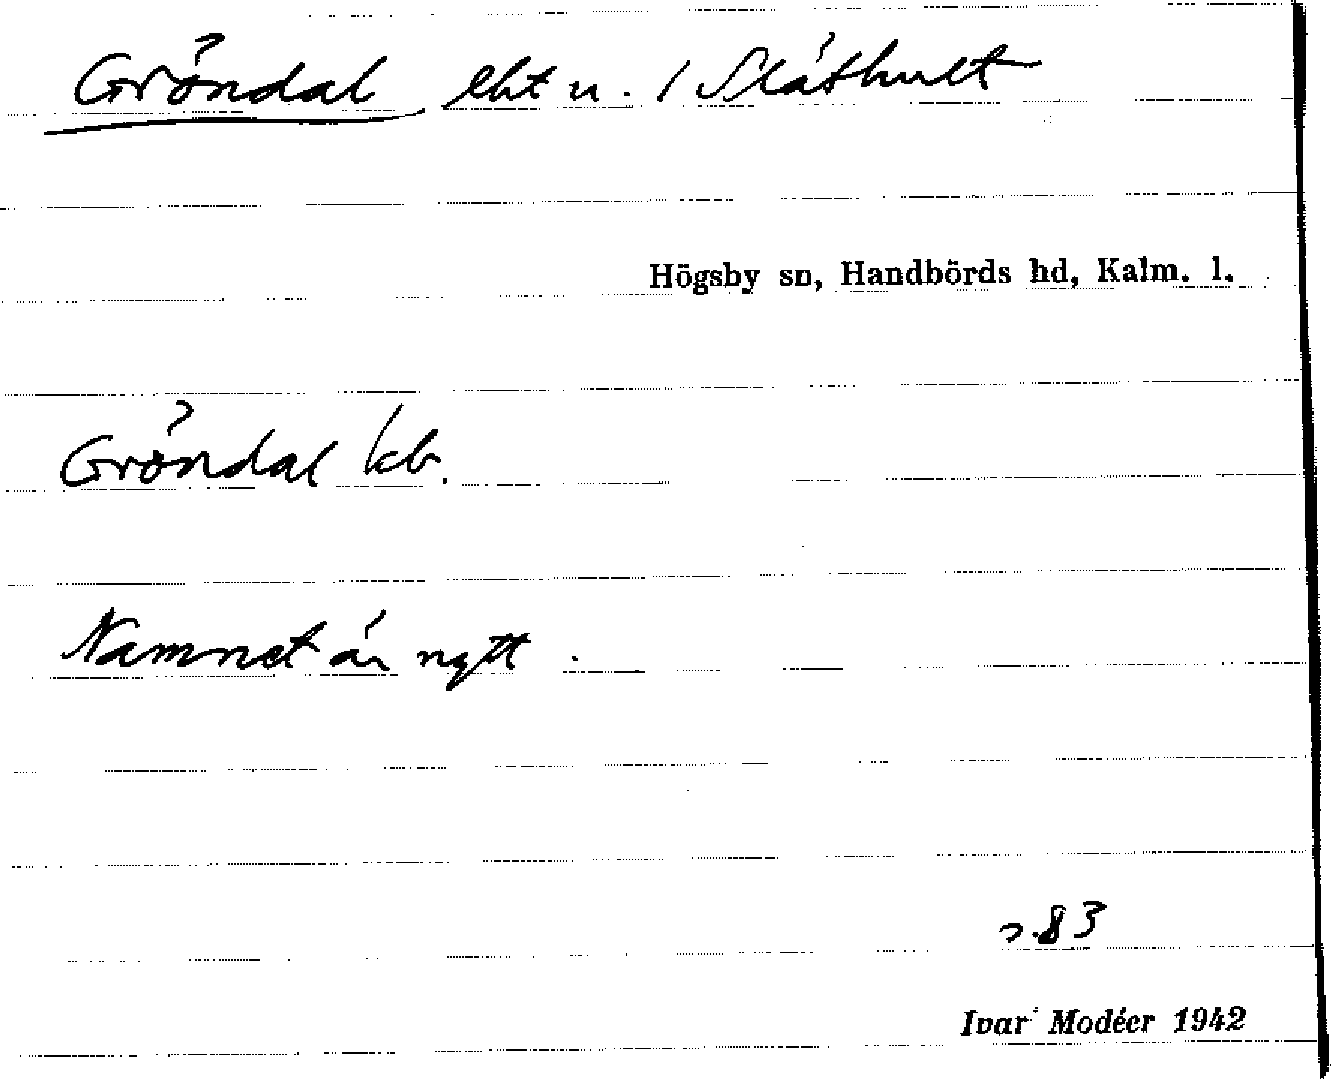 Gröndal, lht u. / Slåthult
Högsby sn, Handbörds hd, Kalm. l.
Gröndal kb.
Namnet är nytt.
s. 83
Ivar Modéer 1942